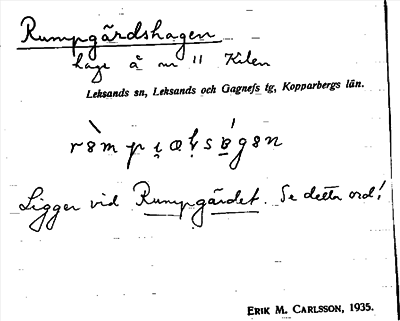 Rumpgärdshagen
hage å nr 11 Kilen
Leksands sn, Leksands och Gagnefs tg, Kopparbergs län.
Ligger vid Rumpgärdet. Se detta ord!
ERIK M. CARLSSON, 1935.